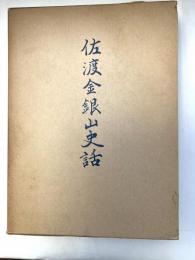 佐渡金銀山史話